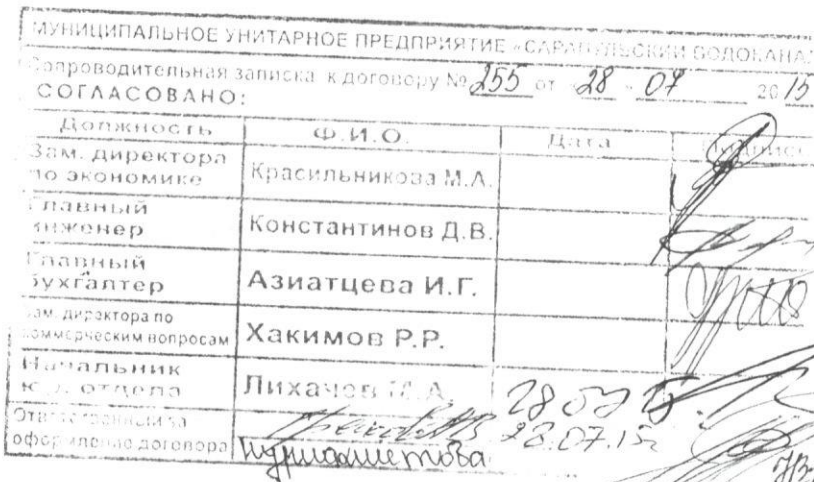 МУНИЦИПАЛЬНОЕ УНИТАРНОЕ ПРЕДПРИЯТИЕ «САРАПУЛЬСКИЙ ВОДОКАНА
Сопроводительная записка к договору № 255 от «28» 07 2015
СОГЛАСОВАНО:
Должность Ф.И.О. Дата Подпись
Зам. директора
по экономике Красильникова М.А.
Главный
инженер Константинов Д.В.
Главный
бухгалтер Азиатцева И.Г.
Зам. директора по
коммерческим вопросам Хакимов Р.Р.
Начальник
юр. отдела Лихачев М.А. 28 07 15
Ответственный за
оформление договора 28.07.15